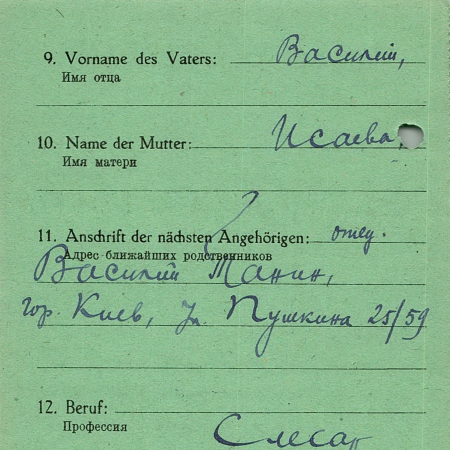 9. Vorname des Vaters: Василий,
Имя отца
10. Name der Mutter: Исаева.
Имя матери
11. Anschrift der nächsten Angehörigen: отец.
Адрес ближайших родственников
Василий Манин,
гор. Киев, Ул. Пушкина 25/59
12. Beruf:
Профессия
Слесар